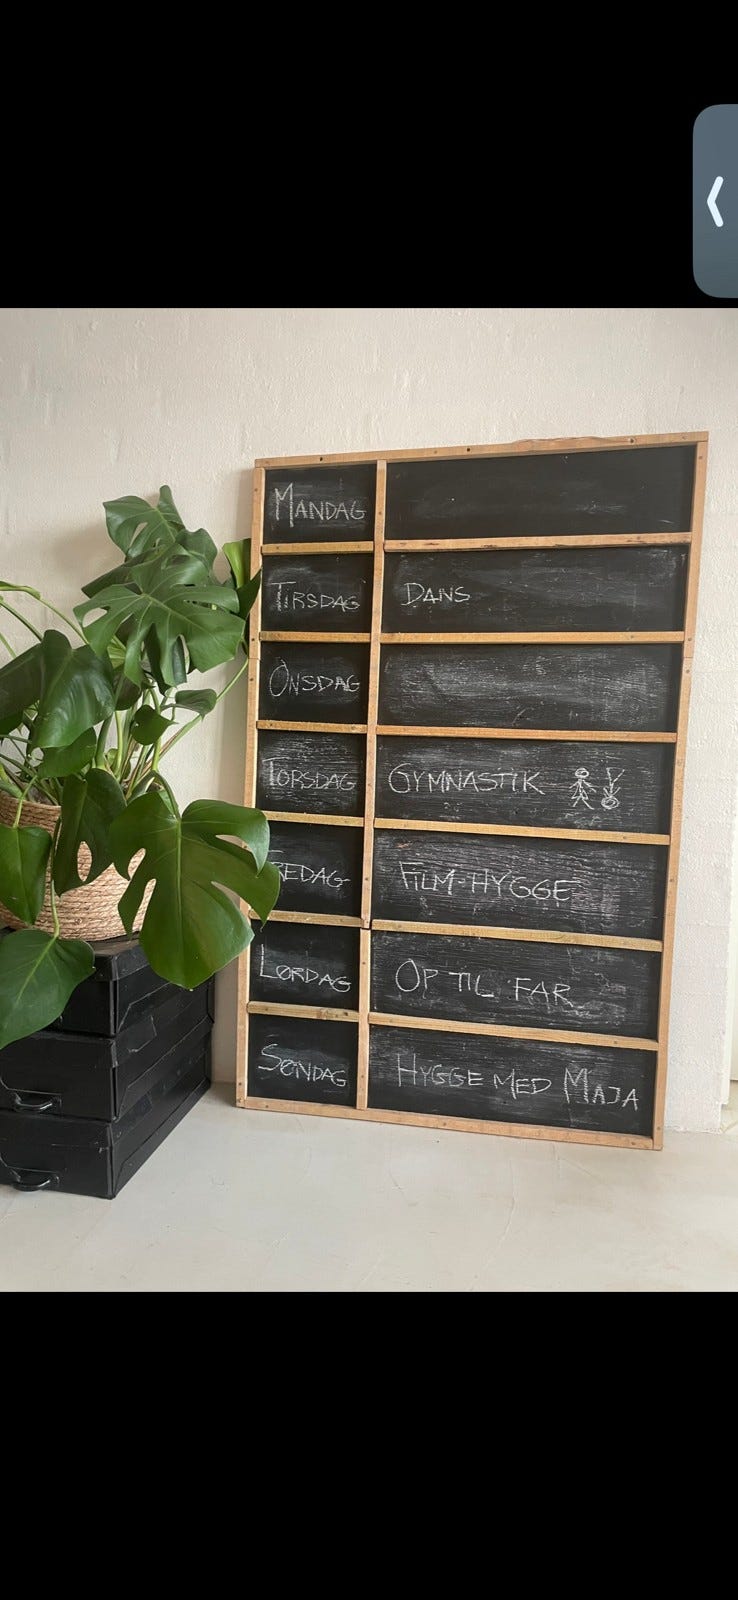 MANDAG
TIRSDAG DANS
ONSDAG
TORSDAG GYMNASTIK
REDAG FILM-HYGGE
LØRDAG OP TIL FAR
SØNDAG HYGGE MED MAJA